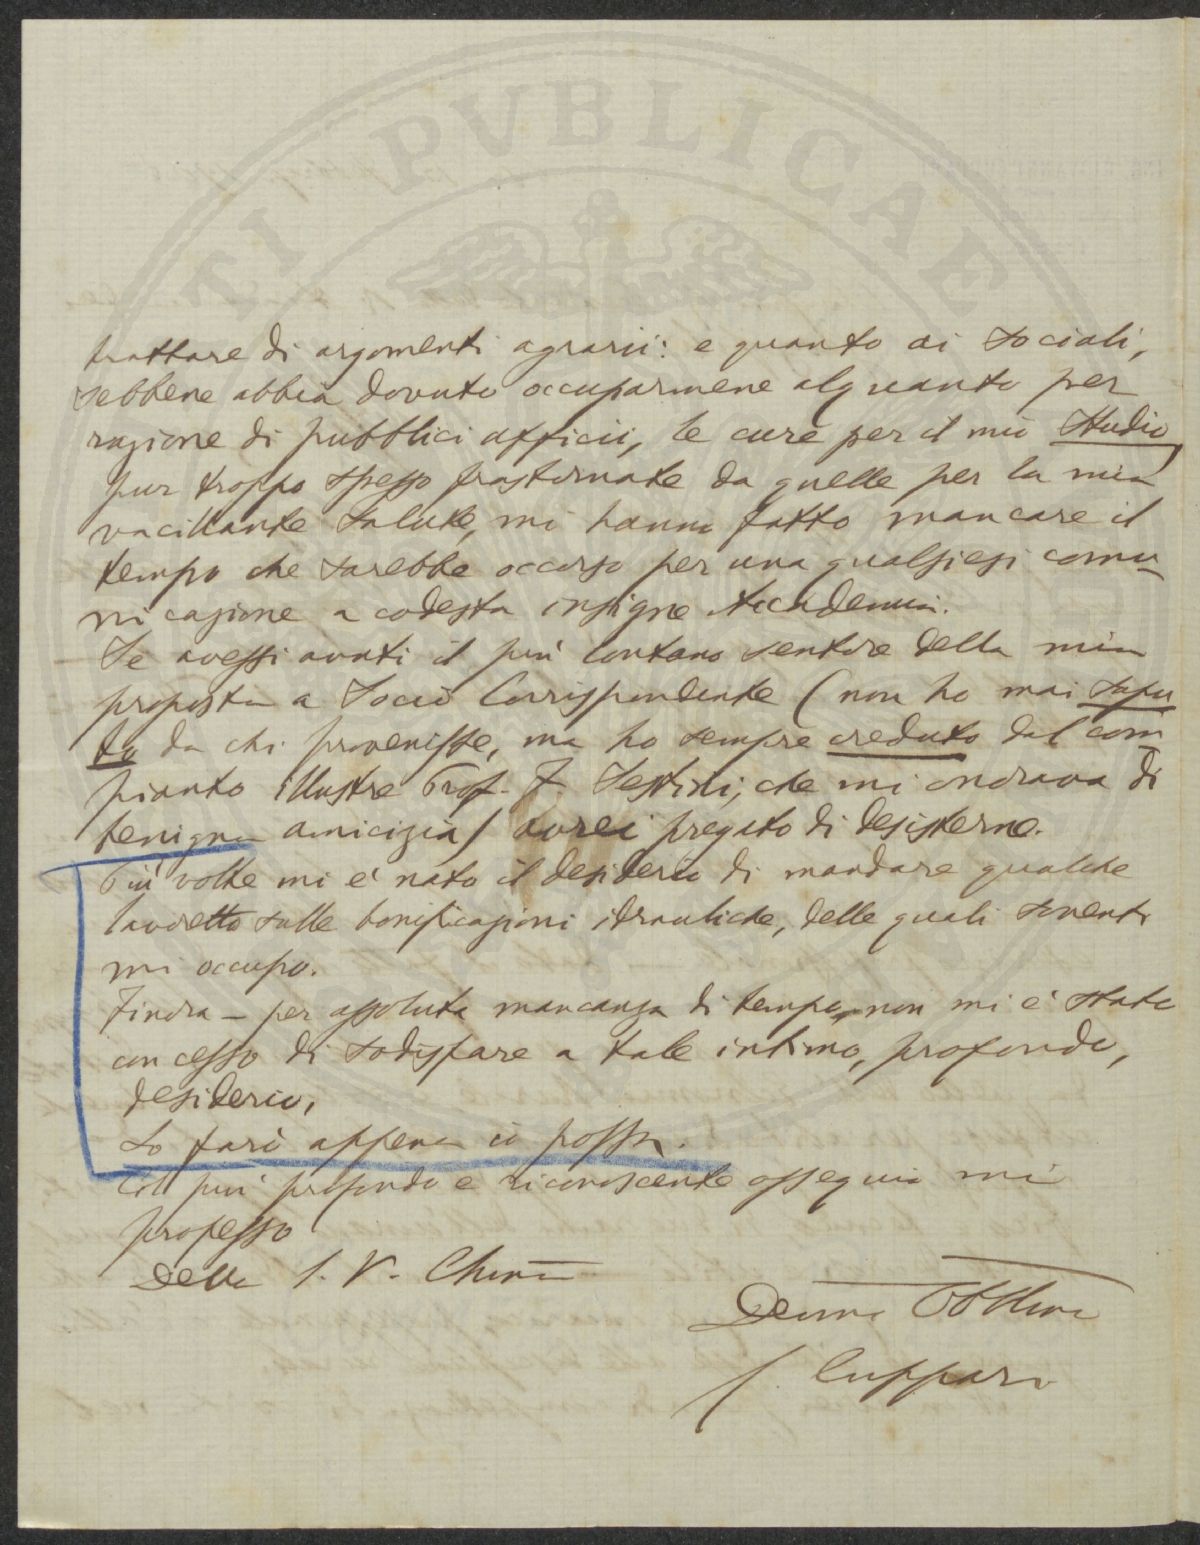 TI PVBLICAE
trattare di argomenti agrarii: e quanto ai sociali,
sebbene abbia dovuto occuparmene alquanto per
ragione di pubblici afficii, le cure per il mio Studio,
pur troppo spesso frastornate da quelle per la mia
vacillante salute, mi hanno fatto mancare il
tempo che sarebbe occorso per una qualsiesi comu-
nicazione a codesta insigne Accademia.
Se avessi avuti il più lontano sentore della mia
proposta a Socio Corrispondente (non ho mai sapu
to da chi provenisse, ma ho sempre creduto dal com
pianto illustre Prof. F. Sestini, che mi onorava di
benigna amicizia) avrei pregato di desisterne.
Più volte mi è nato il desiderio di mandare qualche
lavoretto sulle bonificazioni idrauliche, delle quali sovente
mi occupo.
Finora – per assoluta mancanza di tempo, non mi è stato
concesso di sodisfare a tale intimo, profondo,
desiderio,
Lo farò appena io possa.
Col più profondo e riconoscente ossequio mi
professo
Della S. V. Chiar.
Devmo Obblmo
Cuppari